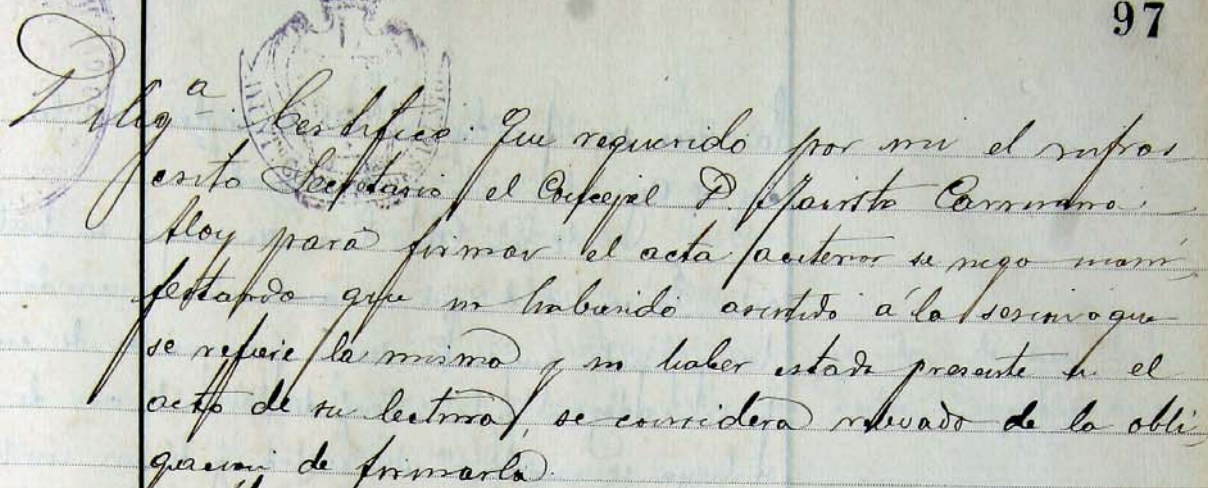 97
Diligª Certifico: Que requerido por mi el infras
crito Secretario el Concejal D. Fausto
Aloy para firmar el acta anterior se nego mani
festando que no habiendo asistido á la sesion a que
se refiere la misma y no haber estado presente en el
acto de su lectura, se considera relevado de la obli
gacion de firmarla